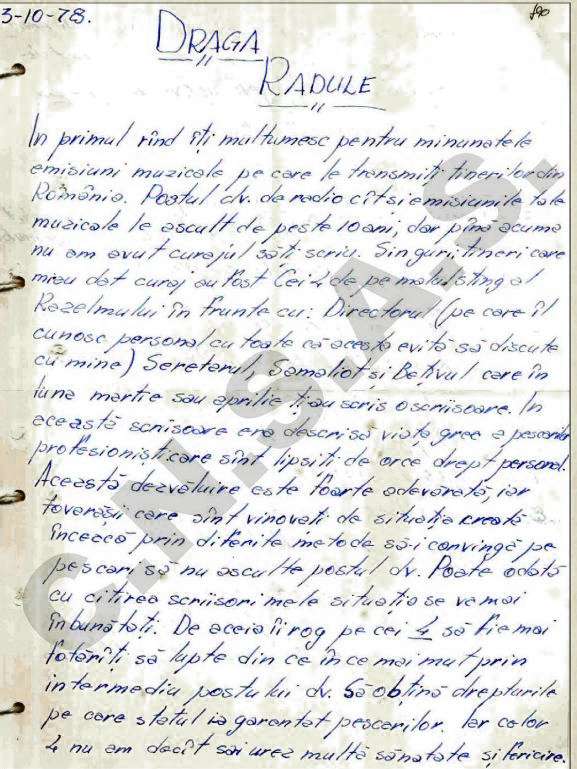 3-10-78.
190
DRAGA
RADULE
In primul rînd îți multumesc pentru minunatele
emisiuni muzicale pe care le transmiți tinerilor din
România. Postul dv. de radio cît si emisiunile tale
muzicale le ascult de peste 10 ani, dar pînă acuma
nu am avut curajul să-ti scriu. Singuri, tineri care
miau dat curaj au fost Cei 4 de pe malul stîng al
Razelmului în frunte cu: Directorul (pe care îl
cunosc personal cu toate că acesta evită să discute
cu mine) Secretarul, Samaliot si Betivul care în
luna martie sau aprilie ți-au scris o scriisoare. In
această scrisoare era descrisă viața grea a pescarilor
profesioniști care sînt lipsiți de orce drept personal.
Această dezvăluire este foarte adevărată, iar
tovarășii care sînt vinovati de situația creată
înceacă prin diferite metode să-i convingă pe
pescari să nu asculte postul dv. Poate odată
cu citirea scriisori mele situația se va mai
înbunătati. De aceia îi rog pe cei 4 să fie mai
fotărîți să lupte din ce în ce mai mult prin
intermediu postului dv. Să obțină drepturile
pe care statul ia garantat pescarilor. Iar celor
4 nu am decît sai urez multă sănatate și fericire.
C.N.S.A.S.